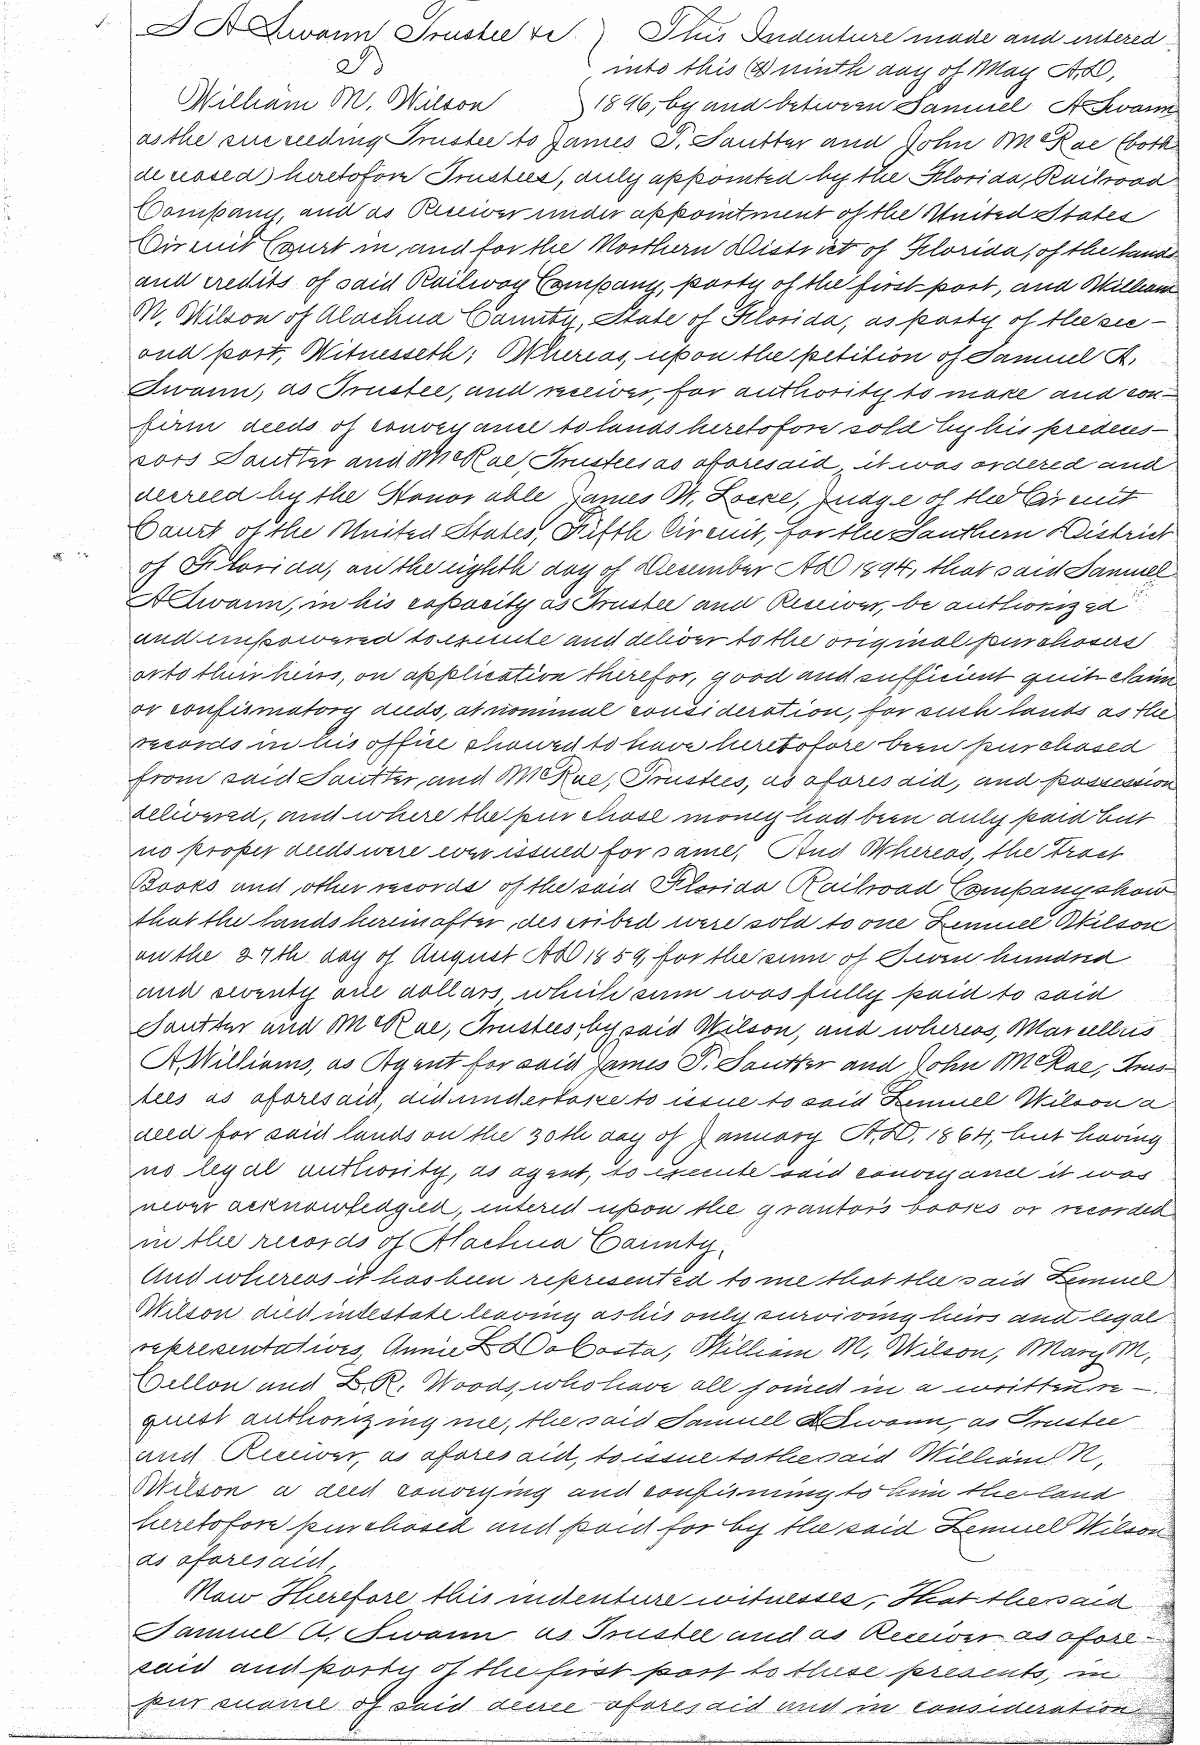 S A Swann Trustee &c. ) This Indenture made and entered
To into this (9) ninth day of May A.D,
William N. Wilson ) 1896, by and between Samuel A Swann
as the succeeding Trustee to James T. Soutter and John McRae (both
deceased) heretofore Trustees, duly appointed by the Florida Railroad
Company, and as Receiver under appointment of the United States
Circuit Court in and for the Northern District of Florida, of the lands
and credits of said Railway Company, party of the first part, and William
N. Wilson of Alachua County, State of Florida, as party of the sec-
ond part, Witnesseth; Whereas, upon the petition of Samuel A.
Swann, as Trustee, and receiver, for authority to make and con-
firm deeds of conveyance to lands heretofore sold by his predeces-
sors Soutter and McRae, Trustees as aforesaid, it was ordered and
decreed by the Honorable James W. Locke, Judge of the Circuit
Court of the United States, Fifth Circuit, for the Southern District
of Florida, on the eighth day of December AD 1894, that said Samuel
A Swann, in his capacity as Trustee and Receiver, be authorized
and empowered to execute and deliver to the original purchasers
or to their heirs, on application therefor, good and sufficient quit-claim
or confirmatory deeds, at nominal consideration, for such lands as the
records in his office showed to have heretofore been purchased
from said Soutter, and McRae, Trustees, as aforesaid, and possession
delivered, and where the purchase money had been duly paid but
no proper deeds were ever issued for same, And Whereas, the Tract
Books and other records of the said Florida Railroad Company show
that the lands hereinafter described were sold to one Lemuel Wilson
on the 27th day of August AD 1859, for the sum of Seven hundred
and seventy one dollars, which sum was fully paid to said
Soutter and McRae, Trustees, by said Wilson, and whereas, Marcellus
A. Williams, as Agent for said James T. Soutter and John McRae, Trus-
tees as aforesaid, did undertake to issue to said Lemuel Wilson a
deed for said lands on the 30th day of January A.D. 1864, but having
no legal authority, as agent, to execute said conveyance it was
never acknowledged, entered upon the grantor's books or recorded
in the records of Alachua County.
And whereas it has been represented to me that the said Lemuel
Wilson died intestate leaving as his only surviving heirs and legal
representatives, Annie L DaCosta, William N. Wilson, Mary M.
Cellon and L.R. Woods, who have all joined in a written re-
quest authorizing me, the said Samuel A Swann, as Trustee
and Receiver, as aforesaid, to issue to the said William N,
Wilson a deed conveying and confirming to him the land
heretofore purchased and paid for by the said Lemuel Wilson
as aforesaid,
Now Therefore this indenture witnesses, That the said
Samuel A. Swann as Trustee and as Receiver as afore-
said and party of the first part to these presents, in
pursuance of said decree aforesaid and in consideration